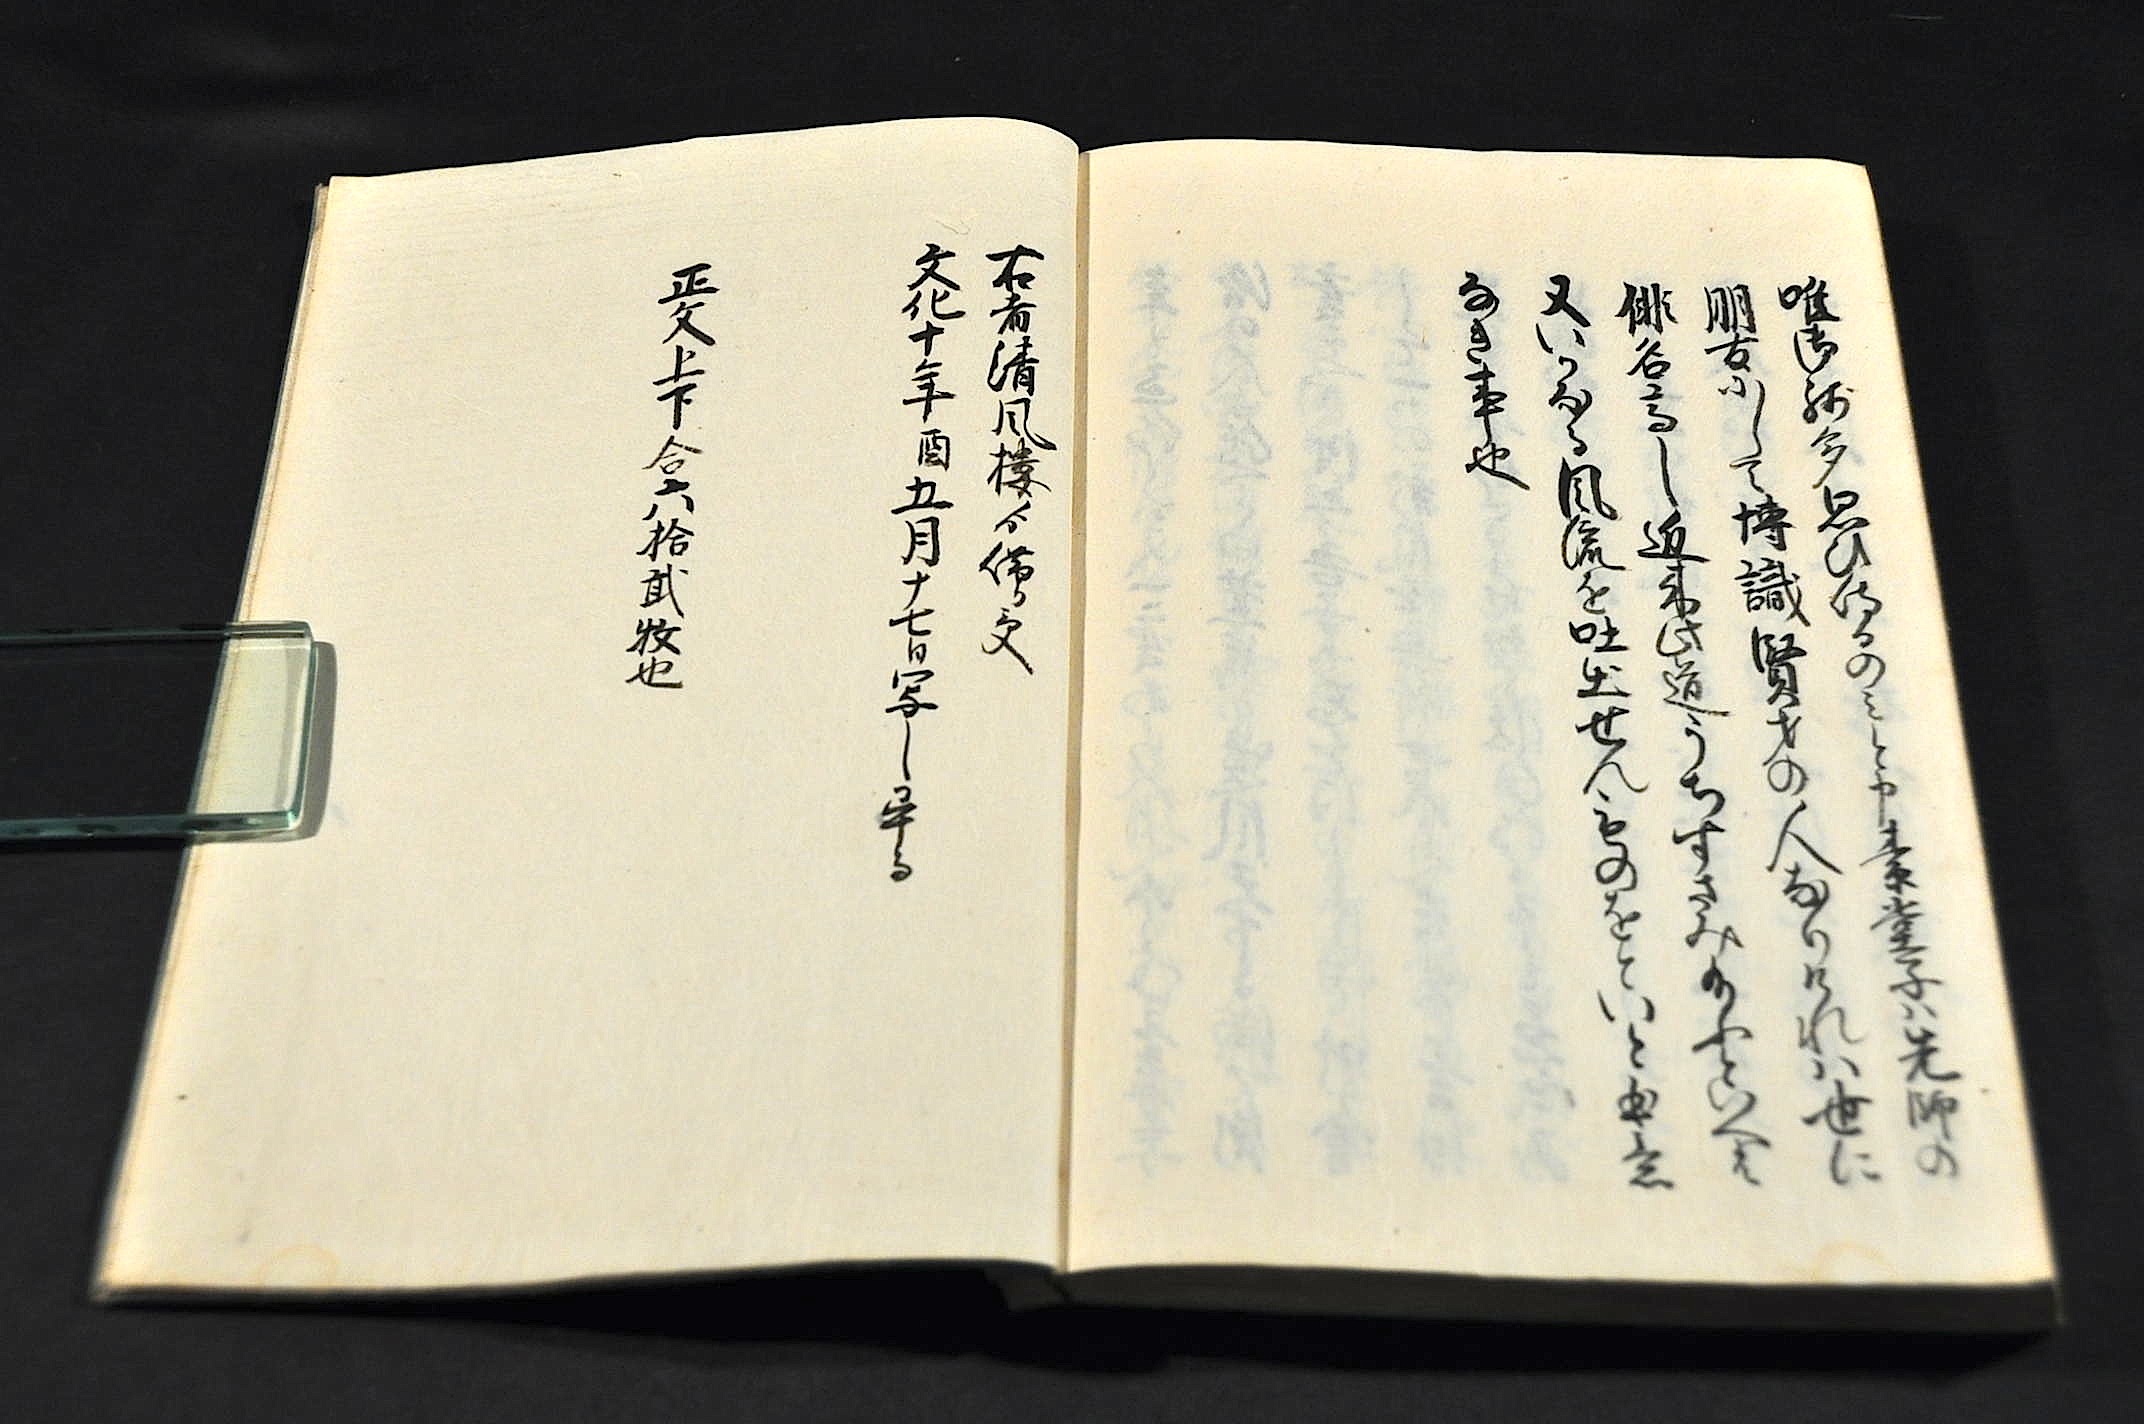 唯御残多思ひ侍るのミと申素堂子ハ先師の
朋友にして博識賢才の人なりけれハ世に
俳名高し近来此道うちすさみ
又いかなる風流を吐出せんものをといと
なき事也
右者清風楼より借り受
文化十年酉五月十七日写し畢る
正文上下合六拾弐牧也